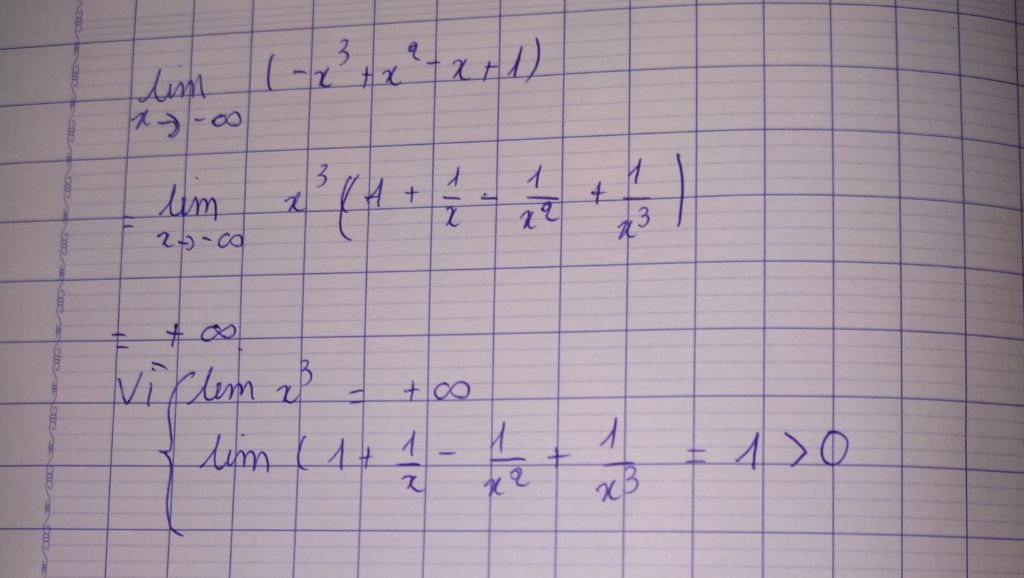 lim (-x³ + x² - x + 1)
x→ -∞
= lim x³ (1 + 1/x - 1/x² + 1/x³)
x→ -∞
= + ∞
Vì { lim x³ = + ∞
lim (1 + 1/x - 1/x² + 1/x³ = 1 > 0